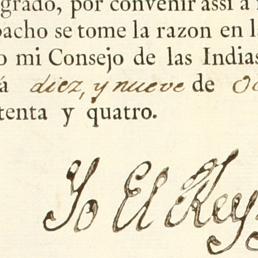 grado, por convenir assi a
pacho se tome la razon en l
o mi Consejo de las Indias
á diez, y nueve de Oc
tenta y quatro.
Yo El Rey